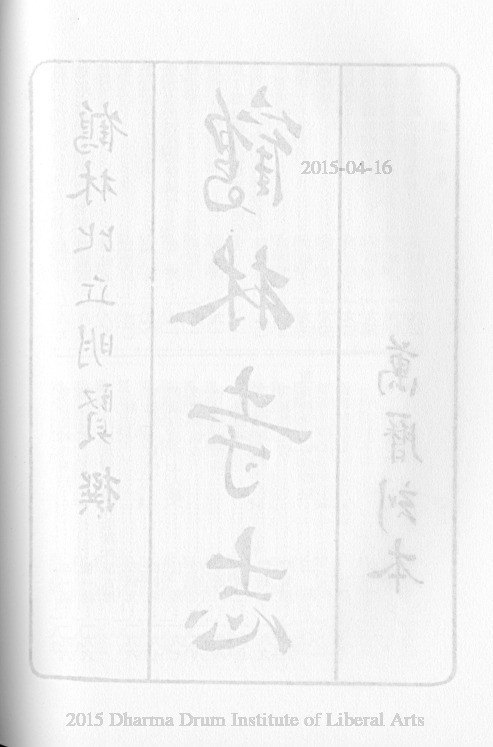 鶴林比丘明賢撰
鶴林寺志
萬曆刻本
2015-04-16
2015 Dharma Drum Institute of Liberal Arts